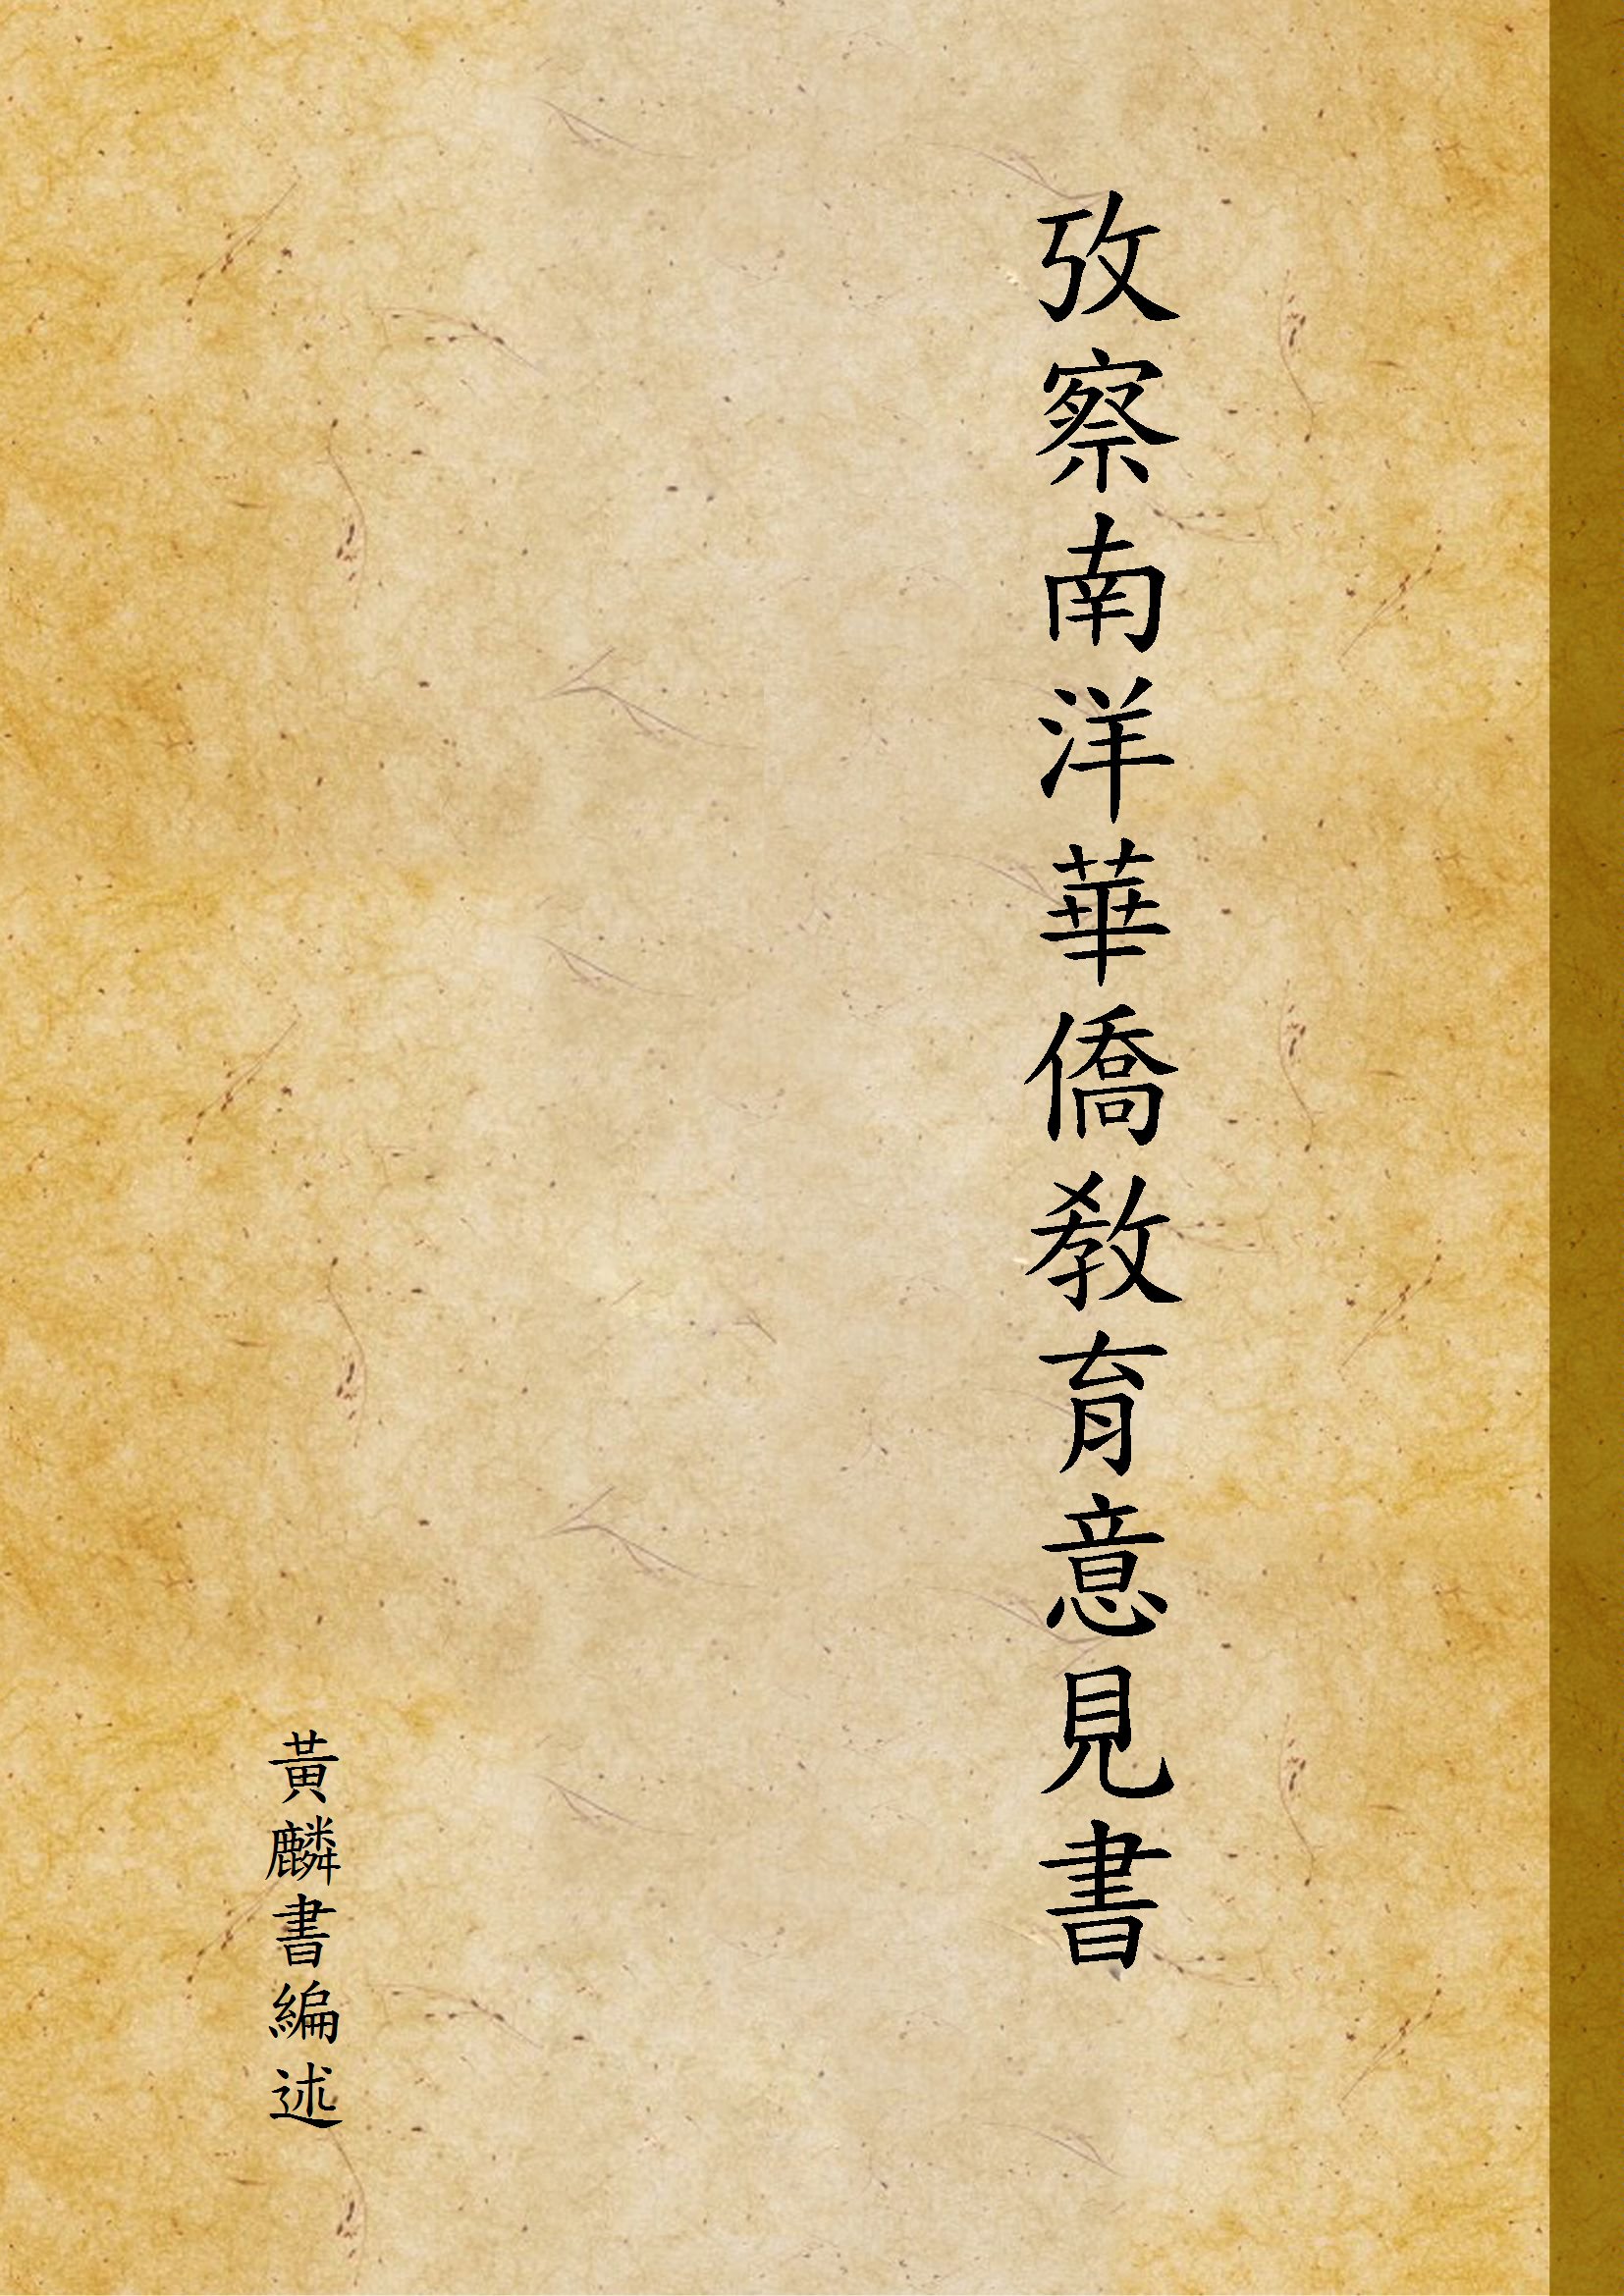 攷察南洋華僑教育意見書
黃麟書編述